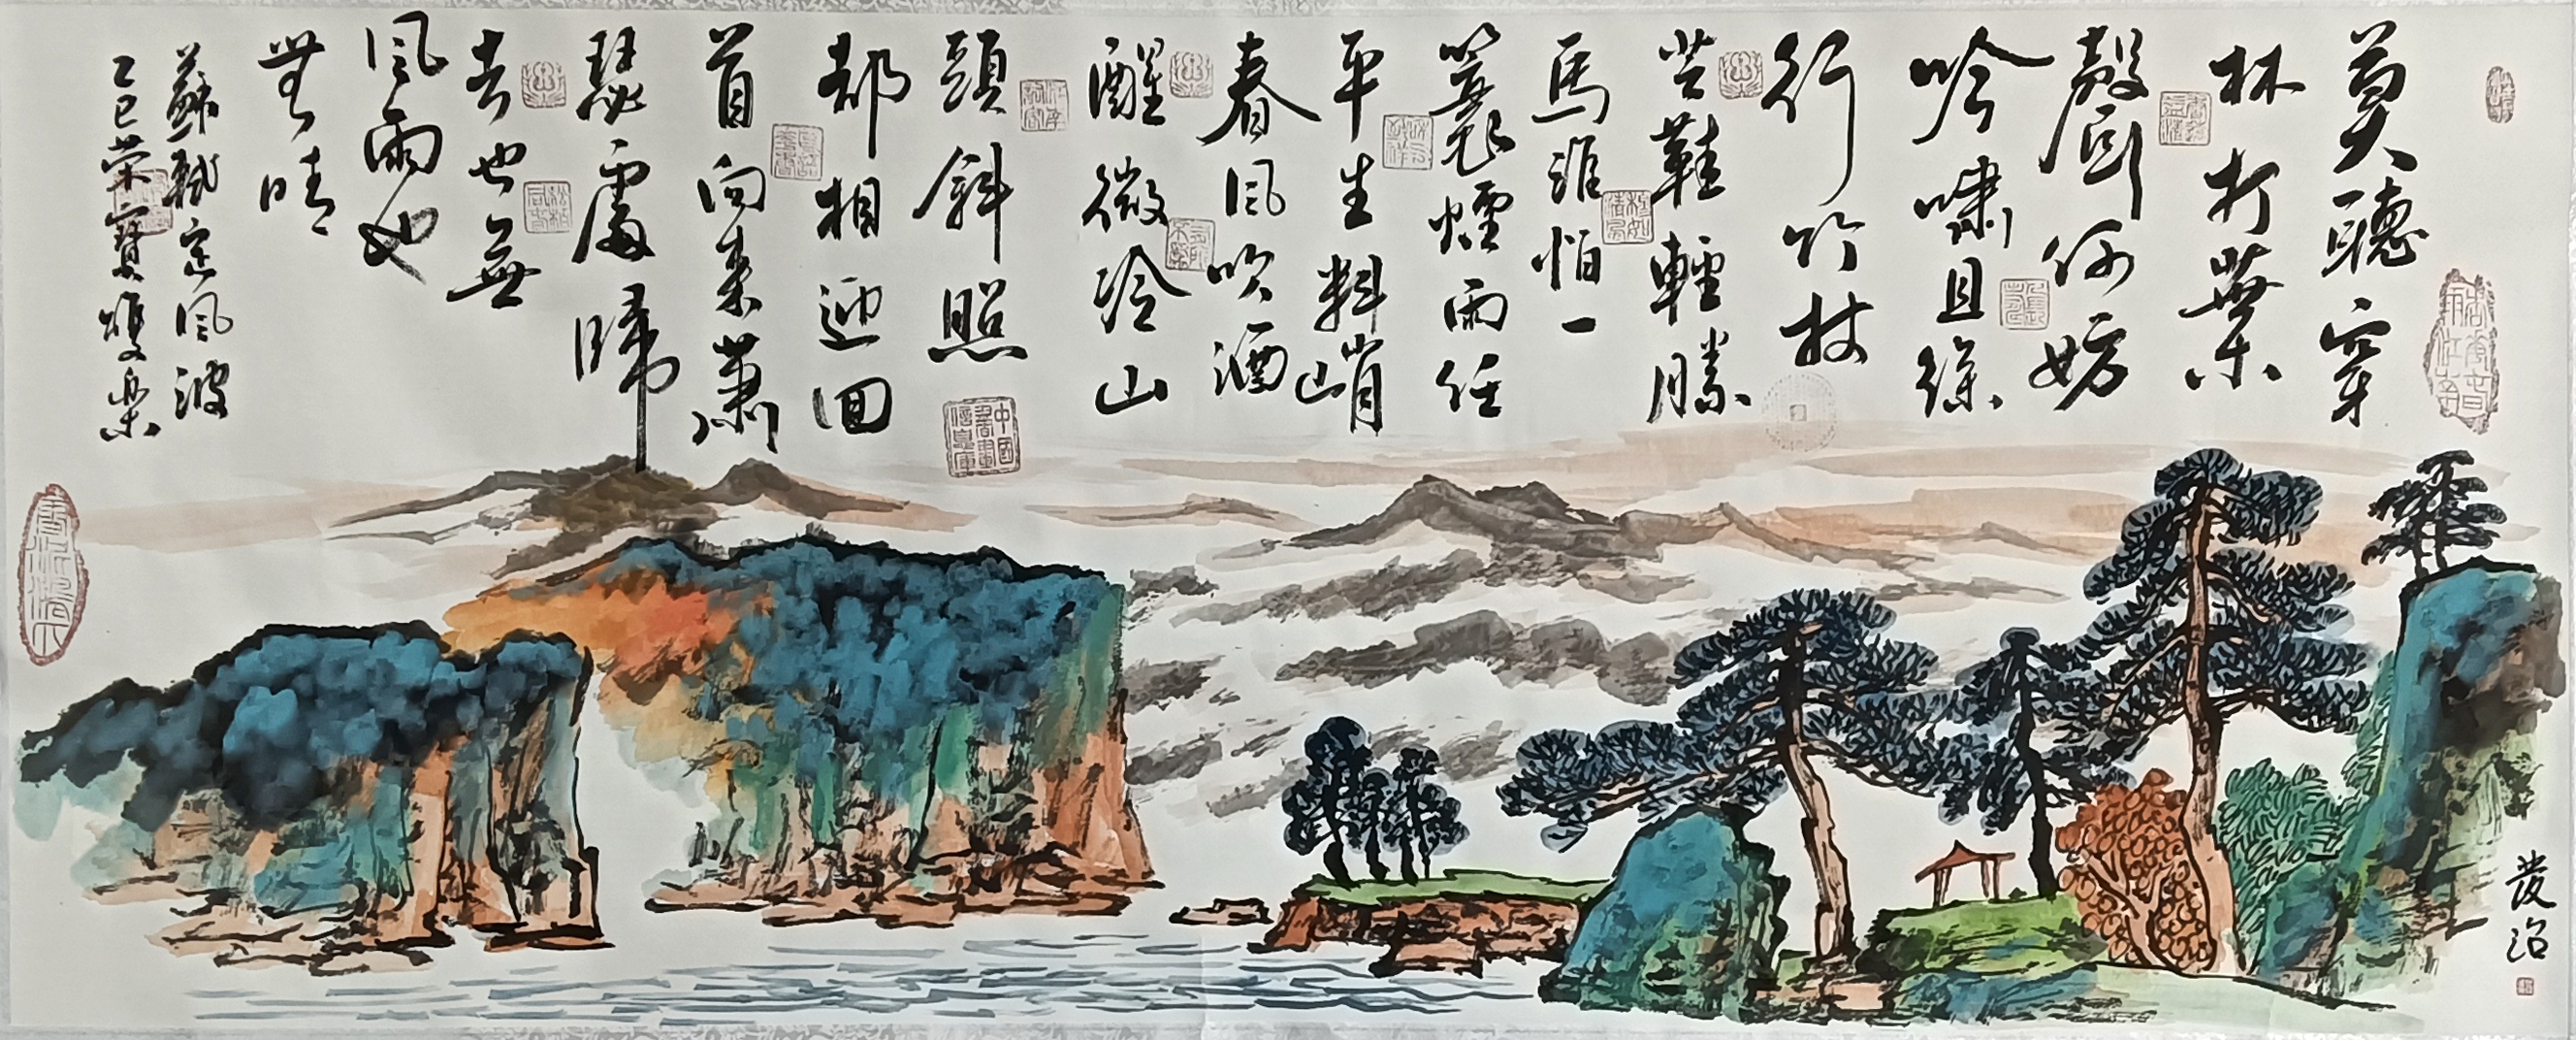 莫聽穿
林打葉
聲何妨
吟嘯且徐
行竹杖
芒鞋輕勝
馬誰怕一
蓑煙雨任
平生料峭
春風吹酒
醒微冷山
頭斜照
却相迎回
首向来蕭
瑟處歸
去也無
風雨也
無晴
蘇軾定風波
乙巳荣寶雙樂
中國書畫信息庫
發治